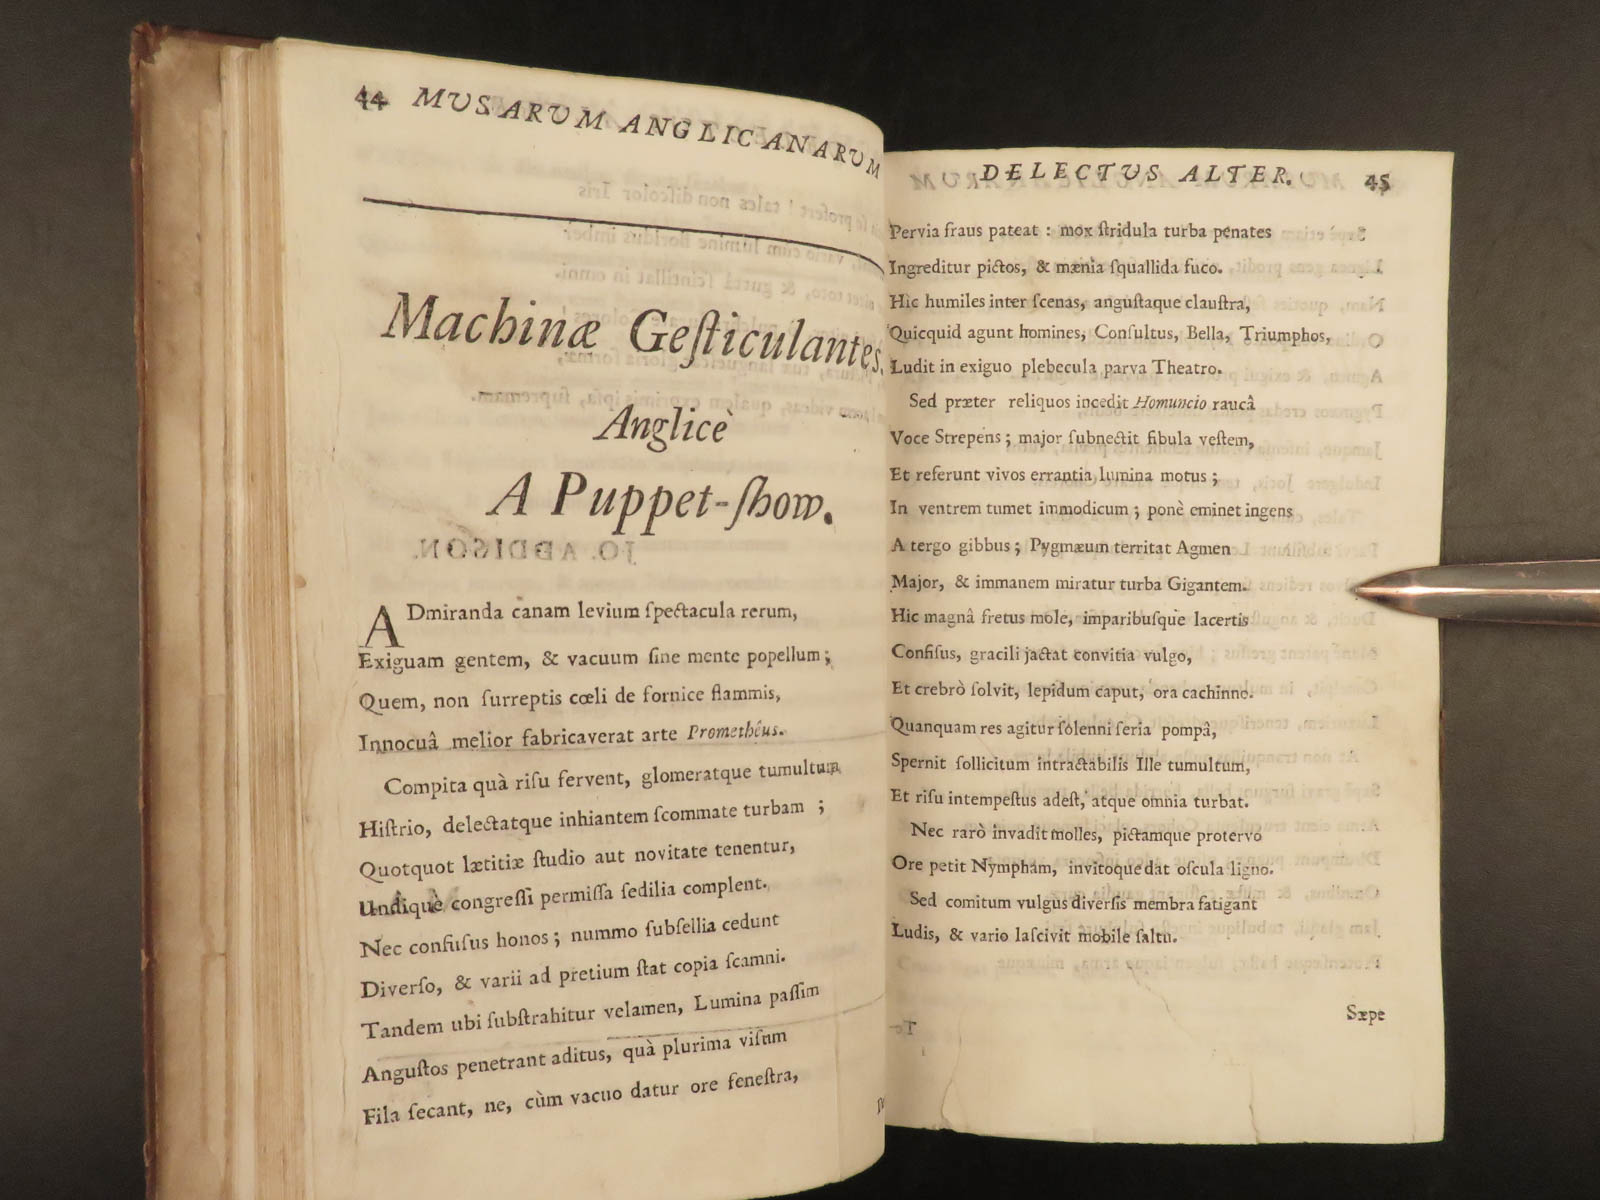 44 MUSARUM ANGLICANARUM
Machinæ Geſticulantes,
Anglicè
A Puppet-ſhow.
ADmiranda canam levium ſpectacula rerum,
Exiguam gentem, & vacuum ſine mente popellum;
Quem, non ſurreptis cœli de fornice flammis,
Innocuâ melior fabricaverat arte Promethêus.
Compita quà riſu fervent, glomeratque tumultum
Hiſtrio, delectatque inhiantem ſcommate turbam;
Quotquot lætitiæ ſtudio aut novitate tenentur,
Undiquè congreſſi permiſſa ſedilia complent.
Nec confuſus honos; nummo ſubſellia cedunt
Diverſo, & varii ad pretium ſtat copia ſcamni.
Tandem ubi ſubſtrahitur velamen, Lumina paſſim
Anguſtos penetrant aditus, quà plurima viſum
Fila ſecant, ne, cùm vacuo datur ore feneſtra,
DELECTUS ALTER. 45
Pervia fraus pateat : mox ſtridula turba penates
Ingreditur pictos, & mænia ſquallida fuco.
Hic humiles inter ſcenas, anguſtaque clauſtra,
Quicquid agunt homines, Conſultus, Bella, Triumphos,
Ludit in exiguo plebecula parva Theatro.
Sed præter reliquos incedit Homuncio raucâ
Voce Strepens; major ſubnectit fibula veſtem,
Et referunt vivos errantia lumina motus;
In ventrem tumet immodicum; ponè eminet ingens
A tergo gibbus; Pygmæum territat Agmen
Major, & immanem miratur turba Gigantem.
Hic magnâ fretus mole, imparibuſque lacertis
Confiſus, gracili jactat convitia vulgo,
Et crebrò ſolvit, lepidum caput, ora cachinno.
Quanquam res agitur ſolenni ſeria pompâ,
Spernit ſollicitum intractabilis Ille tumultum,
Et riſu intempeſtus adeſt, atque omnia turbat.
Nec rarò invadit molles, pictamque protervo
Ore petit Nympham, invitoque dat oſcula ligno.
Sed comitum vulgus diverſis membra fatigant
Ludis, & vario laſcivit mobile ſaltu.
Sæpe